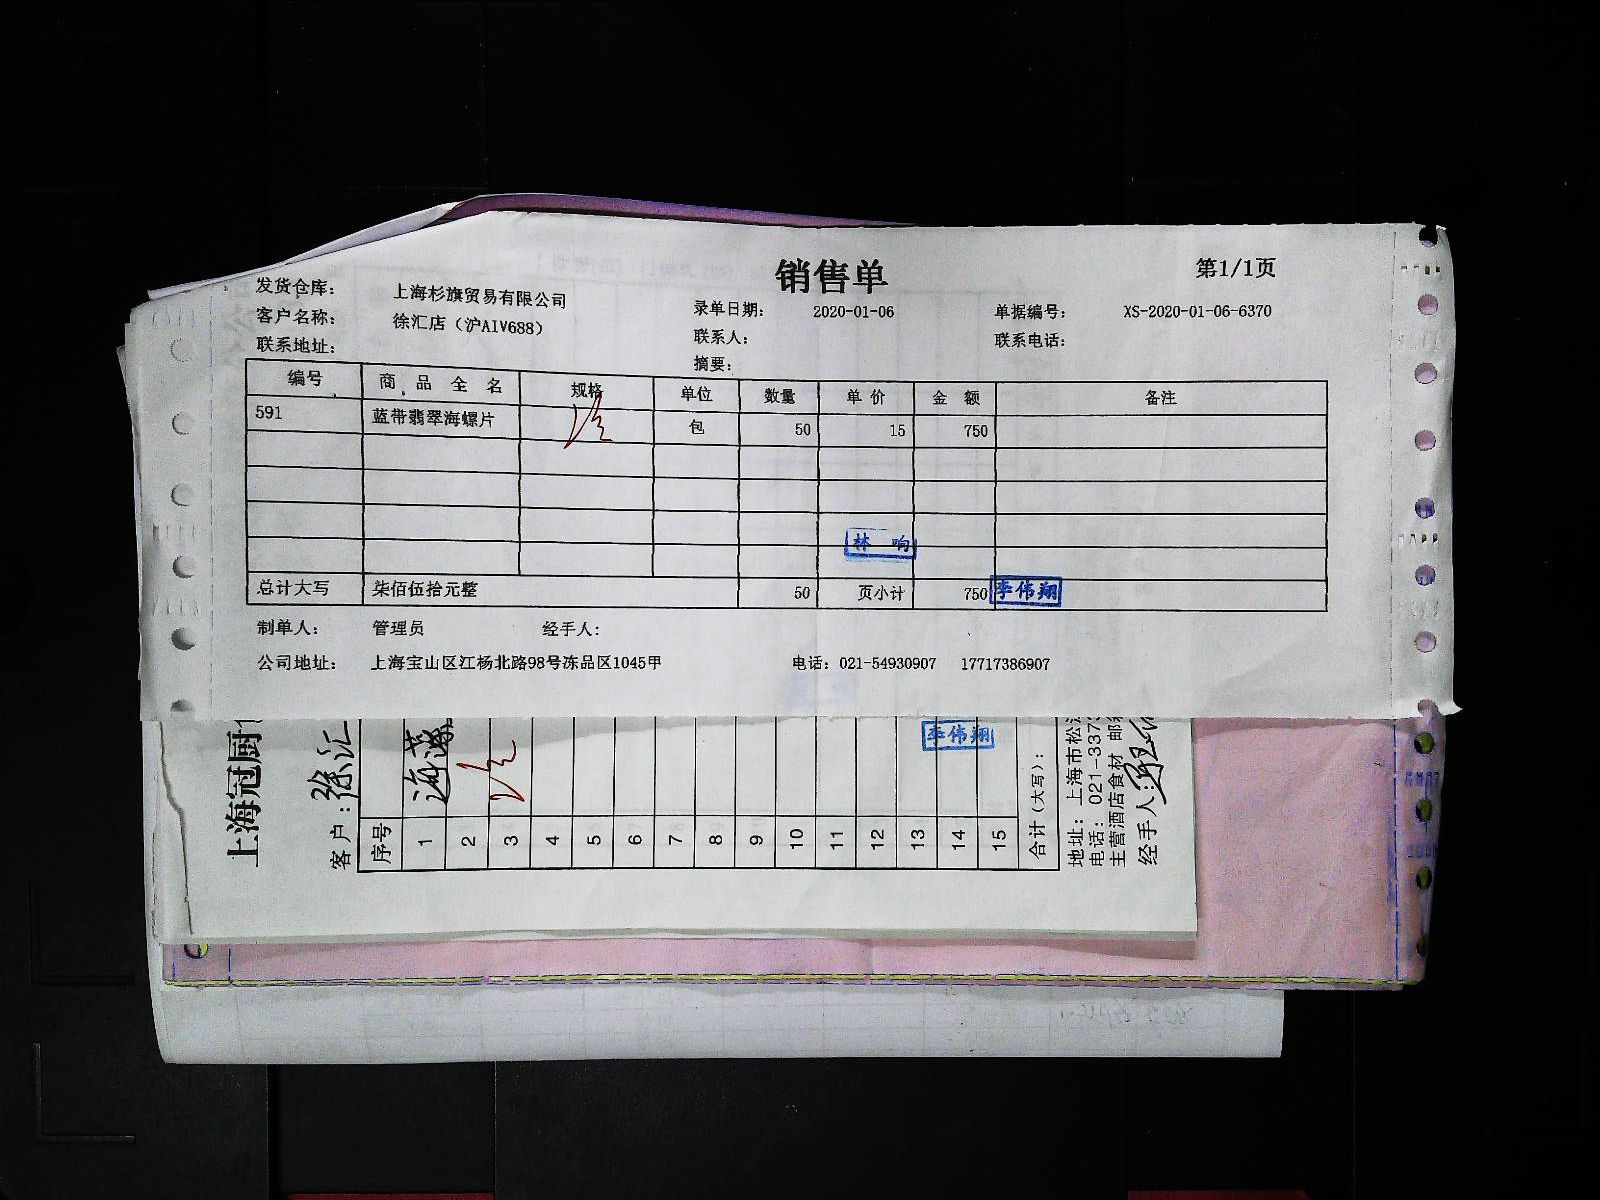 销售单
第1/1页
发货仓库： 上海杉旗贸易有限公司
录单日期： 2020-01-06
单据编号： XS-2020-01-06-6370
客户名称： 徐汇店（沪AIV688）
联系人：
联系电话：
联系地址：
摘要：
编号 商品全名 规格 单位 数量 单价 金额 备注
591 蓝带翡翠海螺片 包 50 15 750
林响
总计大写 柒佰伍拾元整 50 页小计 750 李伟翔
制单人： 管理员 经手人：
公司地址： 上海宝山区江杨北路98号冻品区1045甲 电话：021-54930907 17717386907
上海冠厨
客户：徐汇
序号
1 海藻
2
3
4
5
6
7
8
9
10
11
12
13
14
15
李伟翔
合计（大写）：
地址：上海市松江
电话：021-337
主营酒店食材 邮
经手人：